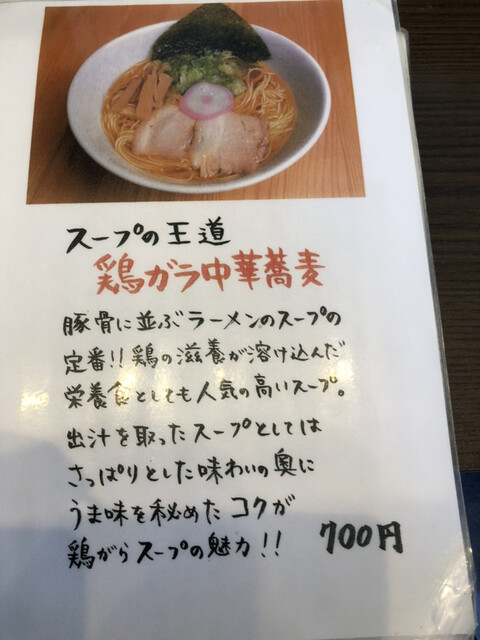 スープの王道
鶏ガラ中華蕎麦
豚骨に並ぶラーメンのスープの
定番!!鶏の滋養が溶け込んだ
栄養食としても人気の高いスープ。
出汁を取ったスープとしては
さっぱりとした味わいの奥に
うま味を秘めたコクが
鶏がらスープの魅力!!
700円